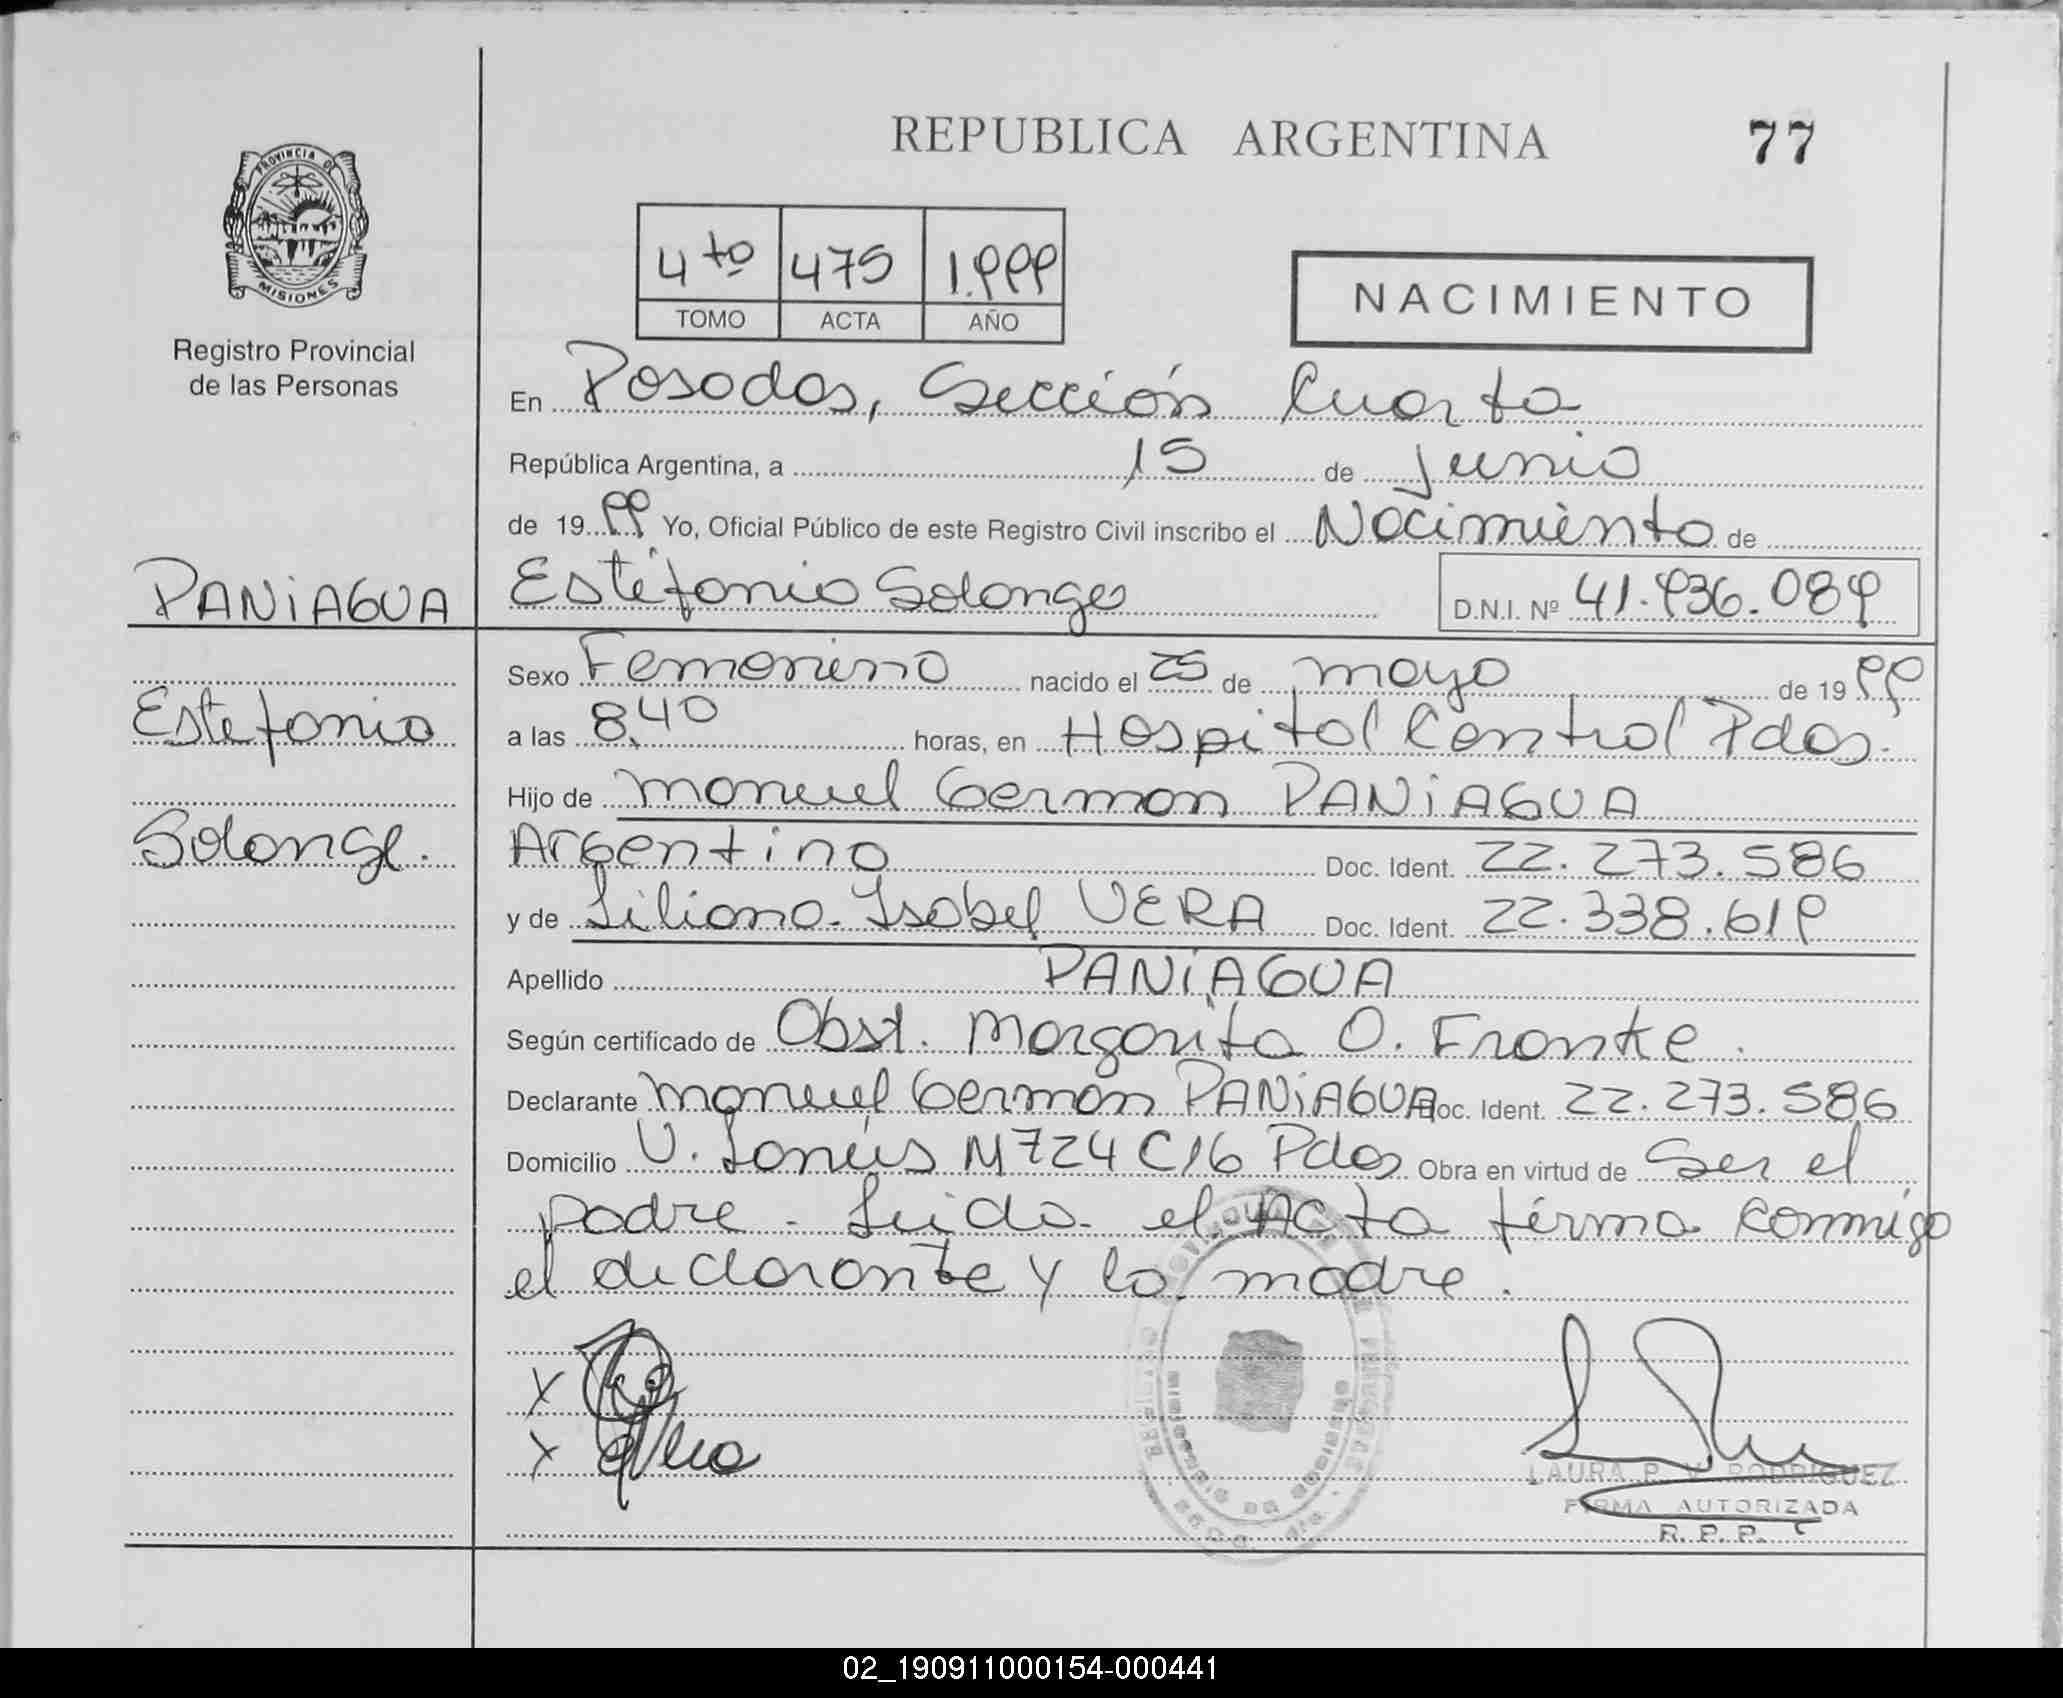 REPUBLICA ARGENTINA 77
PROVINCIA DE
MISIONES
Registro Provincial
de las Personas
4to 475 1.999
TOMO ACTA AÑO
NACIMIENTO
En Posadas, Sección Cuarta
República Argentina, a 15 de Junio
de 1999 Yo, Oficial Público de este Registro Civil inscribo el Nacimiento de
PANIAGUA Estéfania Solange D.N.I. Nº 41.936.089
Sexo Femenino nacido el 25 de mayo de 1999
Estefania a las 8,40 horas, en Hospital Central Pdas.
Hijo de Manuel German PANIAGUA
Solange. Argentino Doc. Ident. 22.273.586
y de Liliana Isabel VERA Doc. Ident. 22.338.619
Apellido PANIAGUA
Según certificado de Obst. Margarita O. Franke.
Declarante Manuel German PANIAGUA Doc. Ident. 22.273.586
Domicilio M724 C16 Pdas Obra en virtud de Ser el
padre - Leida el Acta firma conmigo
el declarante y la madre.
X
X
LAURA P. V. RODRIGUEZ
FIRMA AUTORIZADA
R. P. P.
02_190911000154-000441